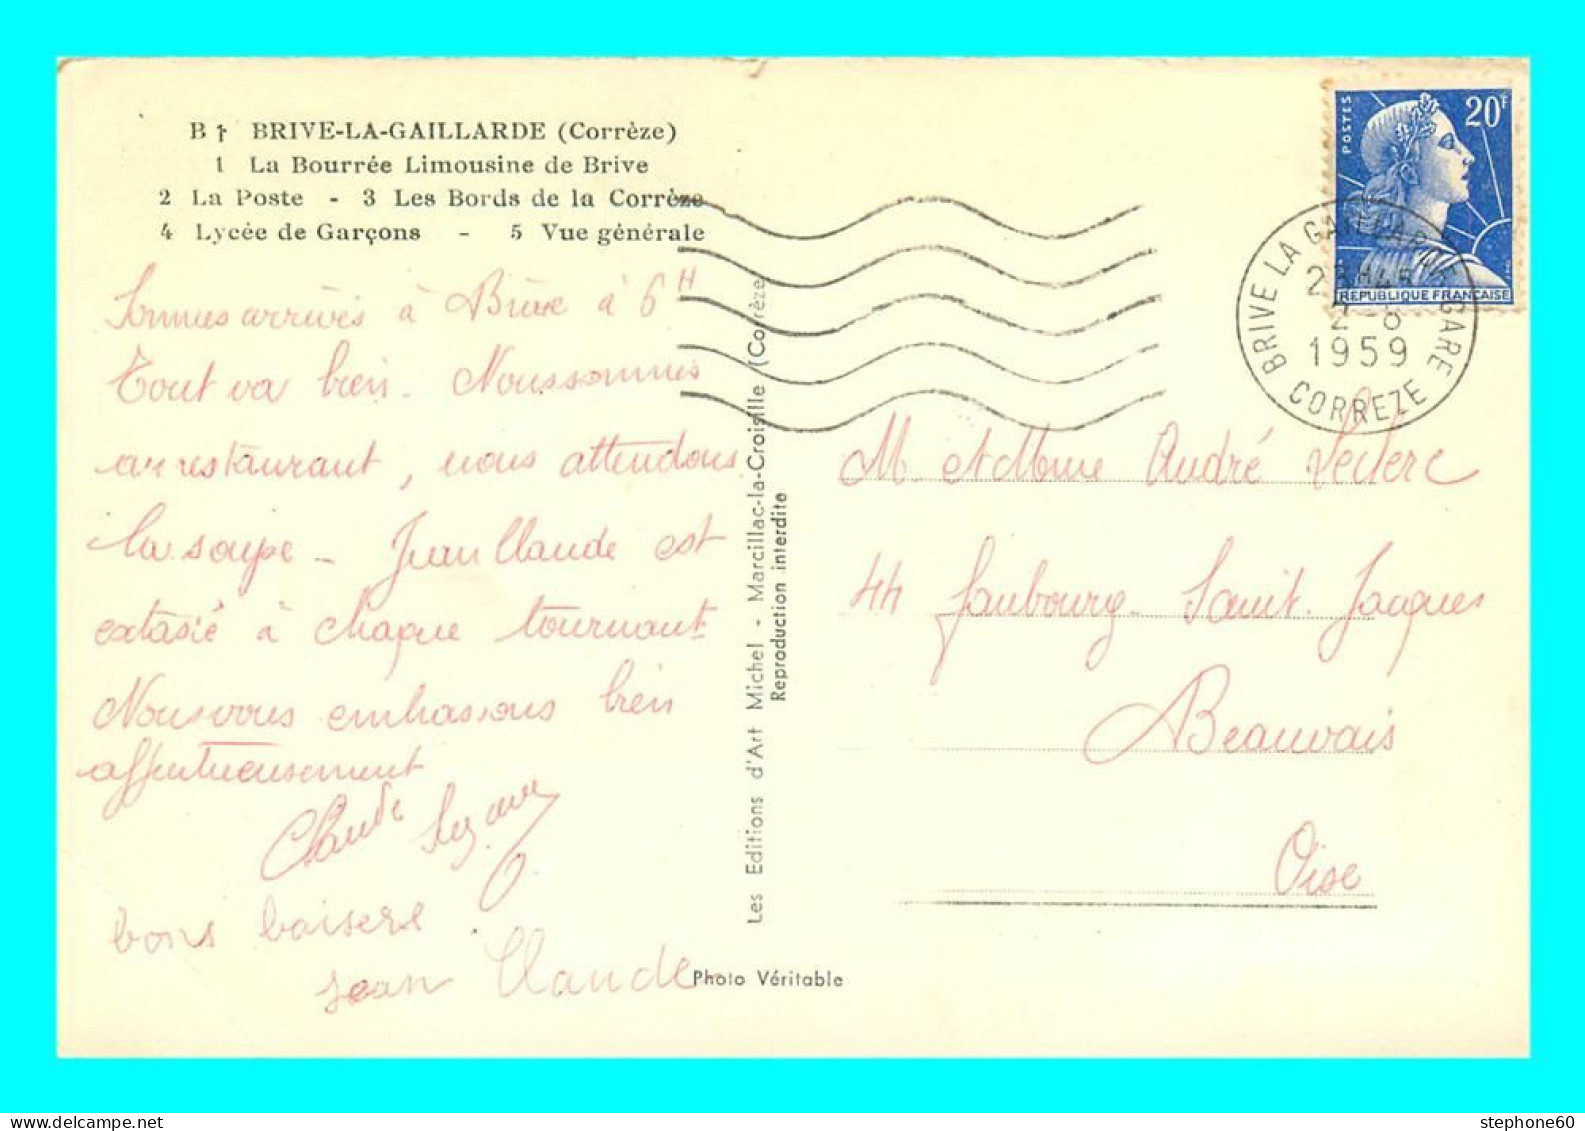 B † BRIVE-LA-GAILLARDE (Corrèze)
1 La Bourrée Limousine de Brive
2 La Poste - 3 Les Bords de la Corrèze
4 Lycée de Garçons - 5 Vue générale
Sommes arrivés à Brive à 6H
Tout va bien. Nous sommes
au restaurant, nous attendons
la soupe - Jean Claude est
extasié à chaque tournant
Nous vous embrassons bien
affectueusement
Claude Suzanne
bons baisers
Jean Claude
Les Editions d'Art Michel - Marcillac-la-Croisille (Corrèze)
Reproduction interdite
Photo Véritable
POSTES
20F
REPUBLIQUE FRANCAISE
BRIVE LA GAILLARDE GARE
2-6
1959
CORREZE
M. et Mme André Leclerc
44 faubourg Saint-Jacques
Beauvais
Oise
stephone60